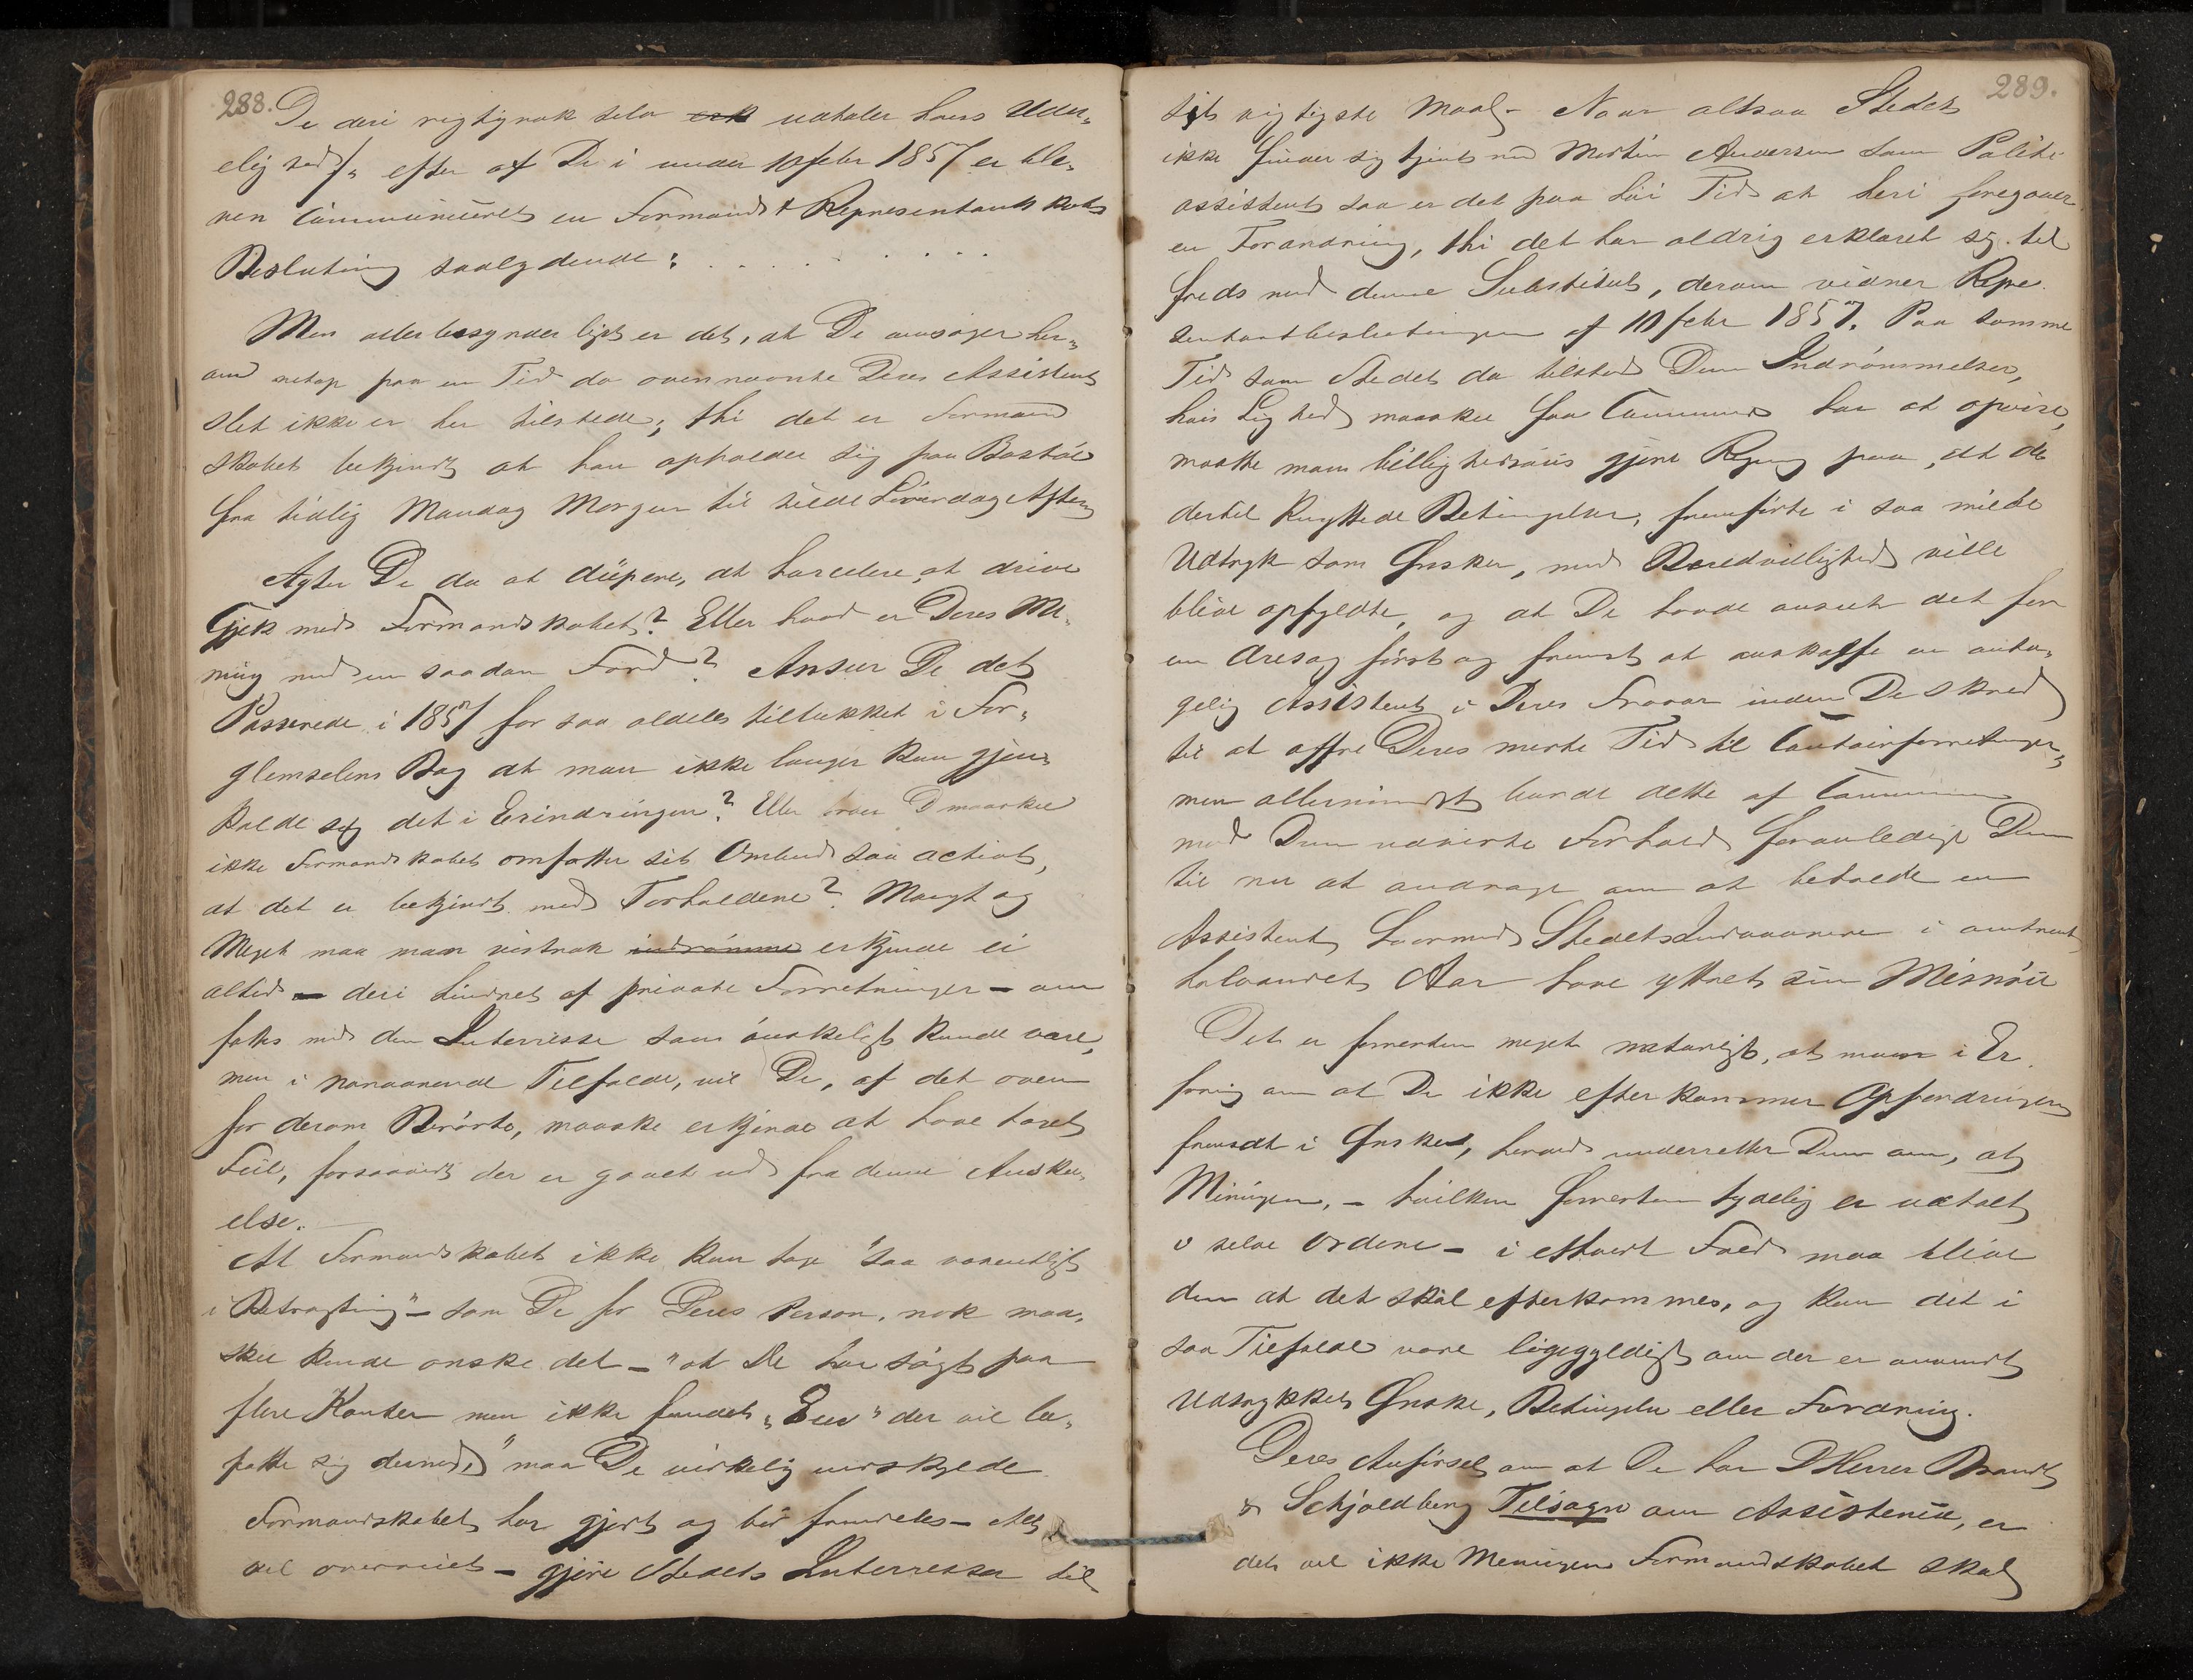 288.
De deri rigtignok selv udtaler hans Udue„
lighed, efter at De i under 10 febr 1857 er ble„
ven Communiceret en Formands & Representantskabs
Beslutning saalydende: . . . . . . . .
Men allerbesynderligst er det, at De ansøger her„
om netop paa en Tid da ovennævnte Deres Assistent
slet ikke er her tilstede; thi det er Formand
skabet bekjendt at han opholder sig paa Bastöe
fra tidlig Mandag Morgen til silde Löverdag Aften
Agter De da at düpere, at harcelere, at drive
Gjek med Formandskabet? Eller hvad er Deres Me„
ning med en saadan Færd? Anseer De det
Passerede i 1857 for saa aldeles tillukket i For„
glemselens Bog at man ikke længer kan gjen„
kalde sig det i Erindringen? Eller troer D maaskee
ikke Formandskabet omfatter sit Ombud saa activt,
at det er bekjendt med Forholdene? Mangt og
Meget maa man vistnok indrömme erkjende ei
altid – deri hindret af private Forretninger – om
fattes med den Interesse som önskeligt kunde være,
men i nærværende Tilfælde, vil De, af det oven
for derom Berörte, maaske erkjende at have taget
Feil, forsaavidt der er gaaet ud fra denne Anskue„
else.
At Formandskabet ikke kan tage "saa væsentligt
i Betragtning" – som De for Deres Person, nok maa„
skee kunde ønske det – "at De har søgt paa
flere Kanter men ikke fundet „Een" der vil be„
fatte sig dermed" maa De virkelig undskylde
Formandskabet har gjort og bör fremdeles – Alt
vel overveiet – gjöre Stedets Interesser til
289.
sit vigtigste Maal – Naar altsaa Stedet
ikke finder sig tjent med Martin Andersen som Politi
assistent saa er det paa höi Tid at heri foregaaer
en Forandring, thi det har aldrig erklæret sig til
freds med denne Substitut, derom vidner Repre
sentantbeslutningen af 10 febr 1857. Paa samme
Tid som Stedet da tilstod Dem Indrömmelser,
hvis Lighed maaskee faa Communer har at opvise,
maatte man billighedsviis gjøre Regning paa, at de
dertil knyttede Betingelser, fremførte i saa milde
Udtryk som Ønsker, med Beredvillighed ville
blive opfyldte, og at De havde anseet det for
en Æresag först og fremst at anskaffe en anta„
gelig Assistent i Deres Fravær inden De skred
til at offre Deres meste Tid til Contoirforretninger,
men allermindst burde dette af Communen
mod Dem udviste Forhold foranledige Dem
til nu at andrage om at beholde en
Assistent, hvormed Stedets Indvaanere i omtrent
halvandet Aar have yttret sin Misnöie
Det er forresten meget naturligt, at man i Er
faring om at De ikke efterkommer Opfordringen
fremsat i Ønsket, herved underretter Dem om, at
Meningen, – hvilken forresten tydelig er udtalt
i selve Ordene – i ethvert Fald maa blive
den at det skal efterkommes, og kan det i
saa Tilfælde være ligegyldigt om der er anvendt
Udtrykket Ønske, Betingelse eller Fordring.
Deres Anførsel om at De har DHerrer Brandt
& Schjoldberg Tilsagn om Assistence, er
det vel ikke Meningen Formandskabet skal